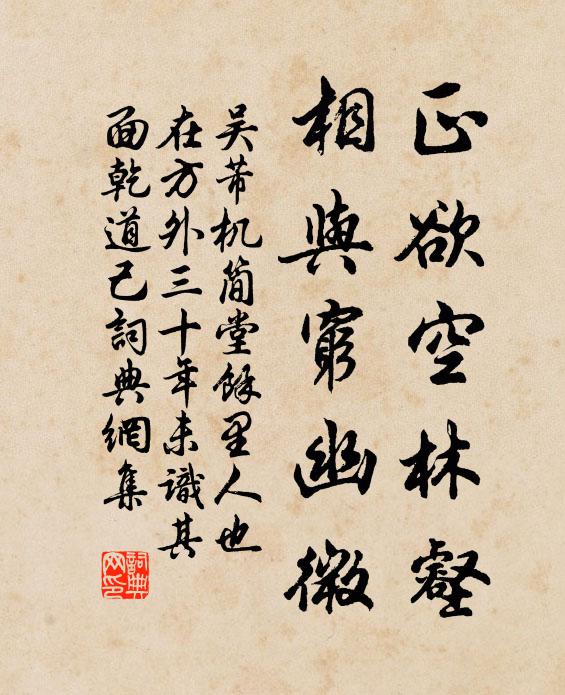 正欲空林壑
相與窮幽微
吳芾机簡堂餘里人也
在方外三十年未識其
面乾道己詞典網集
詞典
网印